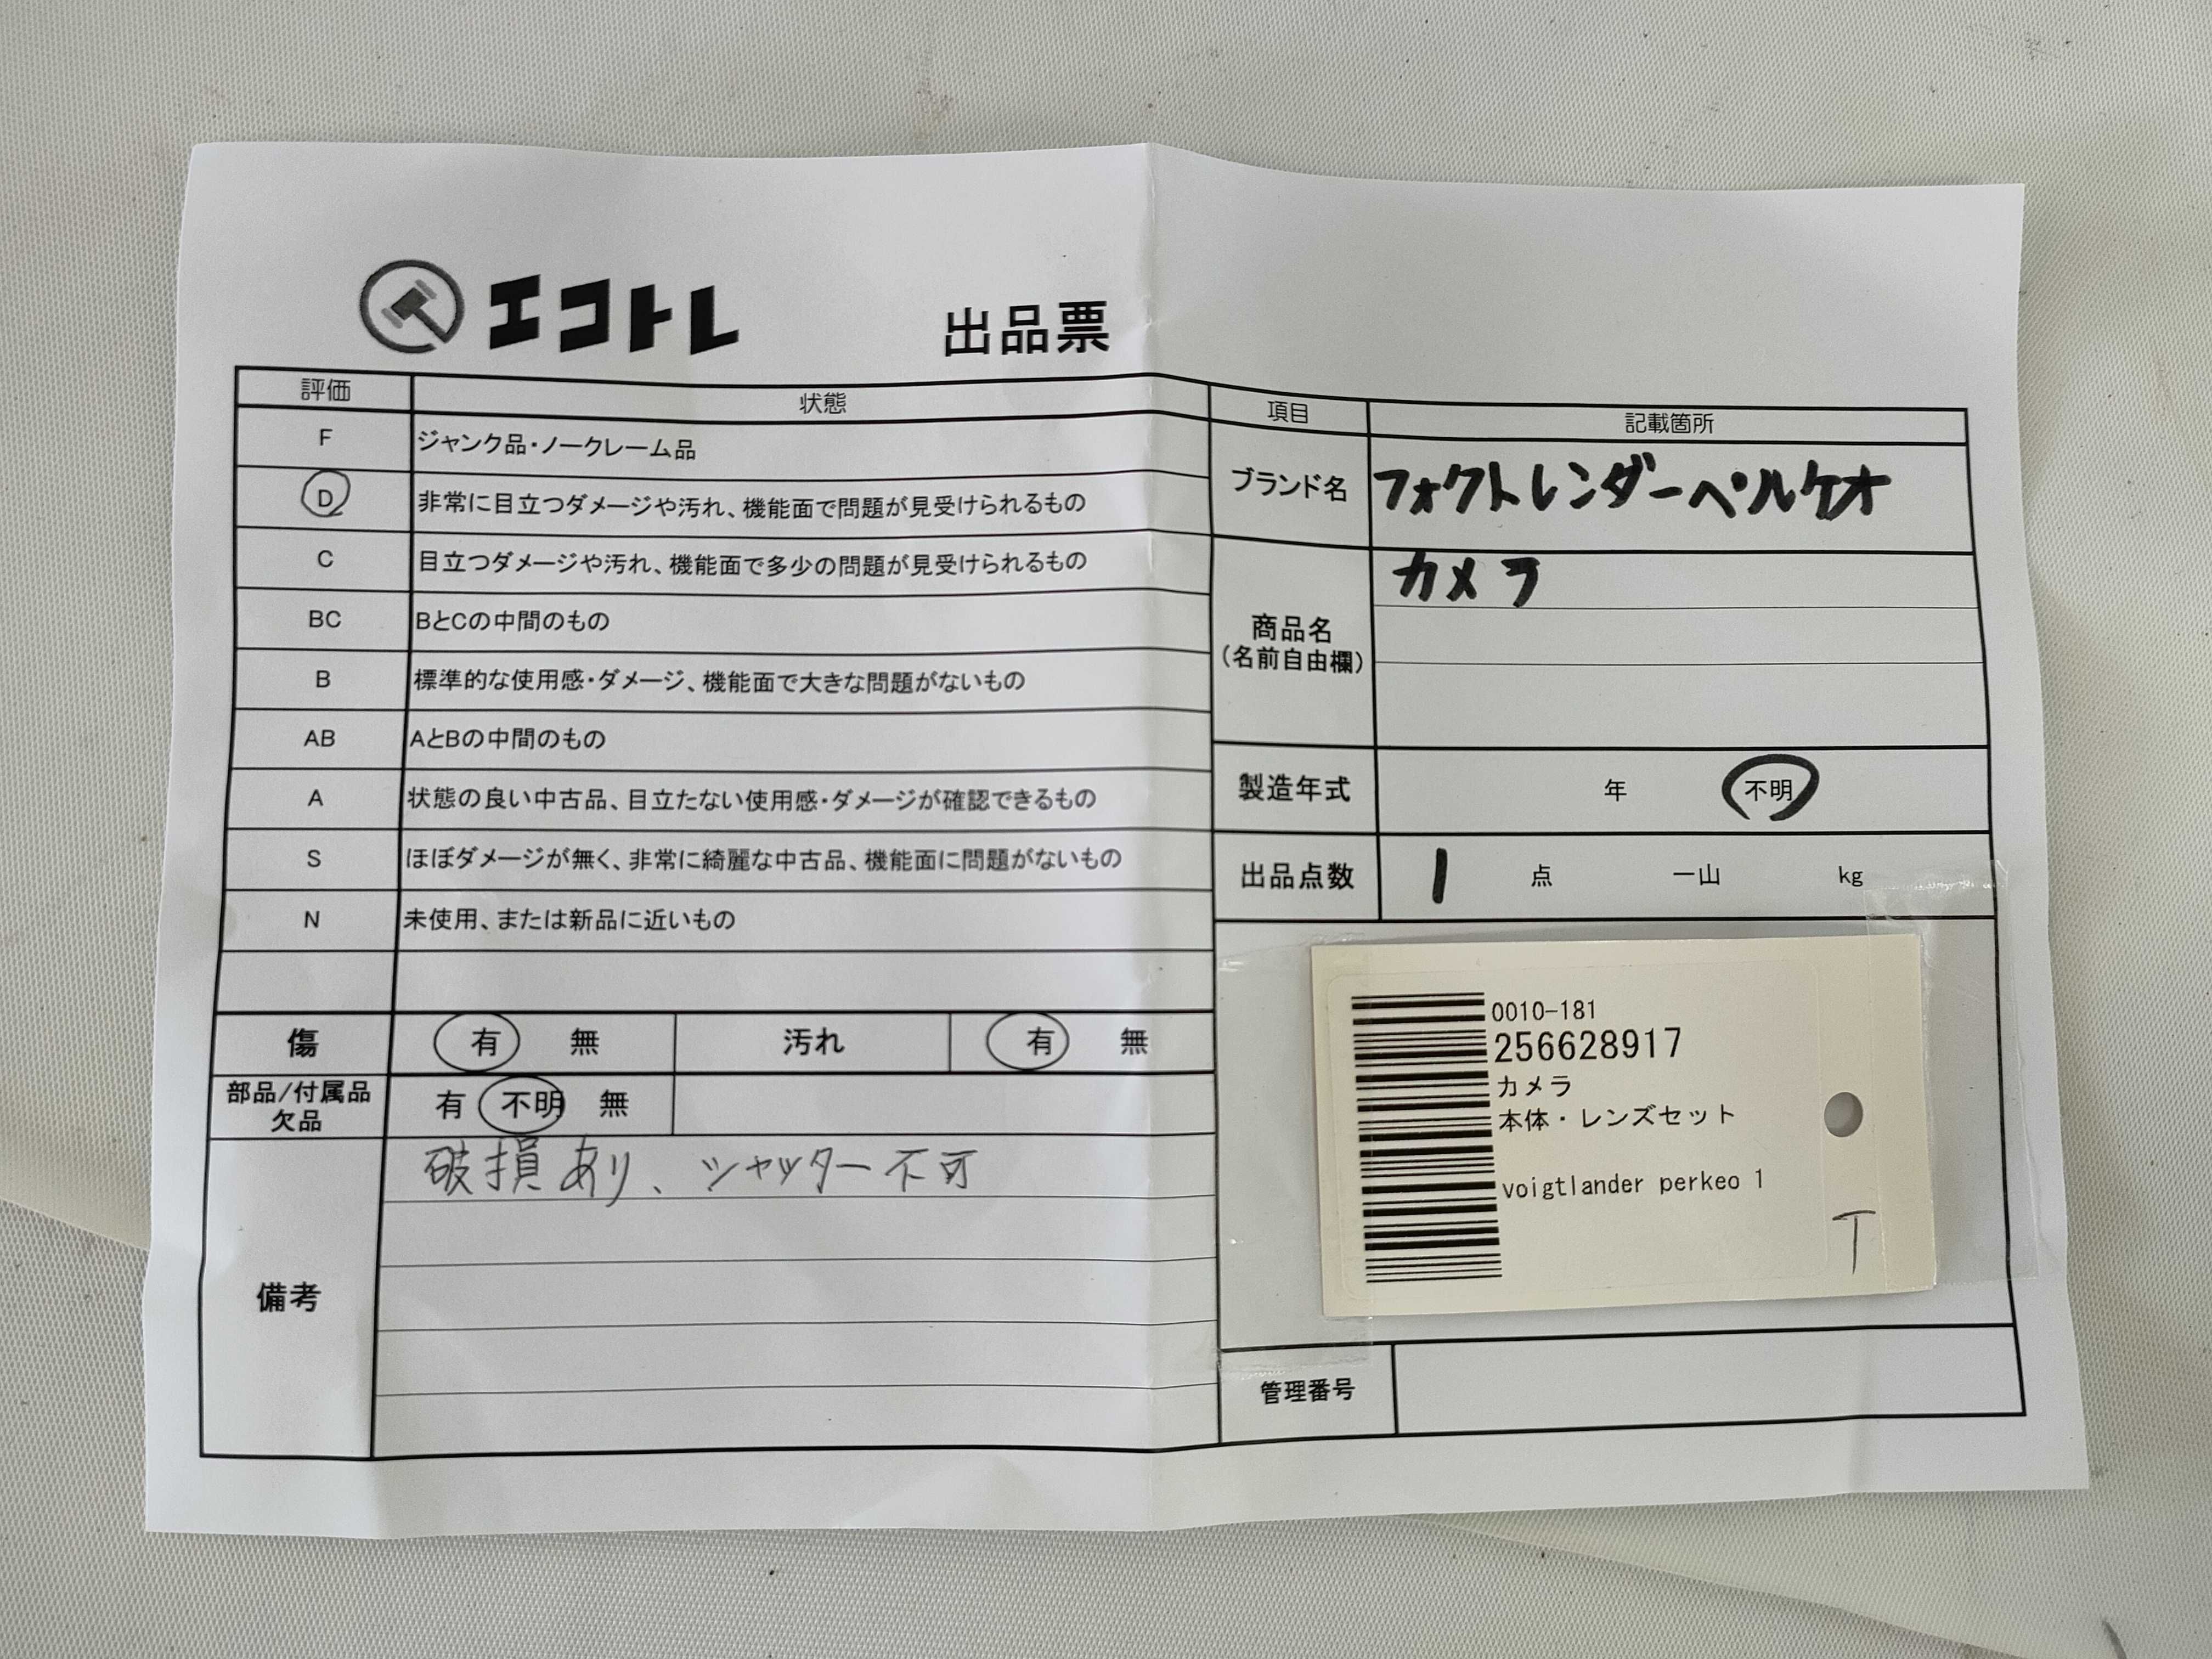 エコトレ
出品票
評価 状態
F ジャンク品・ノークレーム品
D 非常に目立つダメージや汚れ、機能面で問題が見受けられるもの
C 目立つダメージや汚れ、機能面で多少の問題が見受けられるもの
BC BとCの中間のもの
B 標準的な使用感・ダメージ、機能面で大きな問題がないもの
AB AとBの中間のもの
A 状態の良い中古品、目立たない使用感・ダメージが確認できるもの
S ほぼダメージが無く、非常に綺麗な中古品、機能面に問題がないもの
N 未使用、または新品に近いもの
傷 有 無 汚れ 有 無
部品/付属品
欠品
有 不明 無
備考
破損あり、シャッター不可
項目 記載箇所
ブランド名 フォクトレンダーペルケオ
商品名
(名前自由欄)
カメラ
製造年式 年 不明
出品点数 1 点 一山 kg
0010-181
256628917
カメラ
本体・レンズセット
voigtlander perkeo 1
T
管理番号